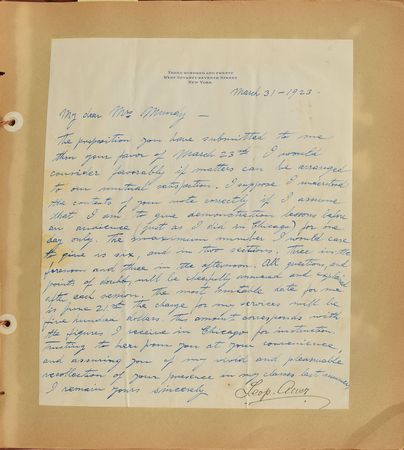 THREE HUNDRED AND TWENTY
WEST SEVENTY-SEVENTH STREET
NEW YORK
March 31 - 1923 -
My dear Mrs Mundy -
The proposition you have submitted to me
thru your favor of March 23th, I would
consider favorably if matters can be arranged
to our mutual satisfaction. I suppose I understand
the contents of your note correctly if I assume
that I am to give demonstration lessons before
an audience (just as I did in Chicago) for one
day only. The maximum number I would care
to give is six, and in two sections. Three in the
forenoon and three in the afternoon. All questions and
points of doubt, will be cheerfully answered and explained
after each session. The most suitable date for me
is June 21.th the charge for my services will be
five hundred dollars. This amount corresponds with
the figures I receive in Chicago for instruction.
Trusting to hear from you at your convenience,
and assuring you of my vivid and pleasurable
recollection of your presence in my classes last summer,
I remain yours sincerely
Leop. Auer